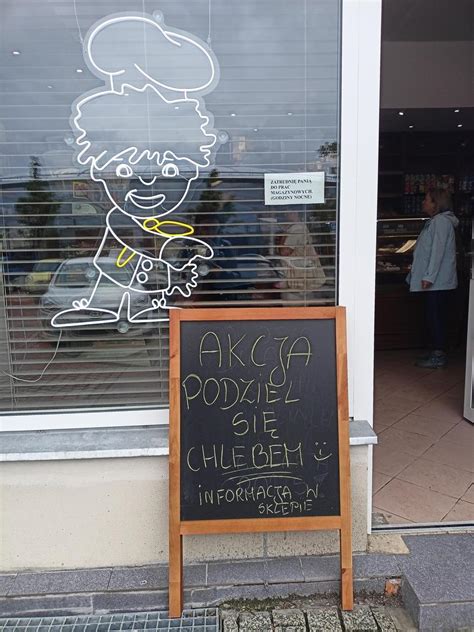 ZATRUDNIĘ PANIĄ
DO PRAC
MAGAZYNOWYCH.
(GODZINY NOCNE)
AKCJA
PODZIEL
SIĘ
CHLEBEM
INFORMACJA W
SKLEPIE